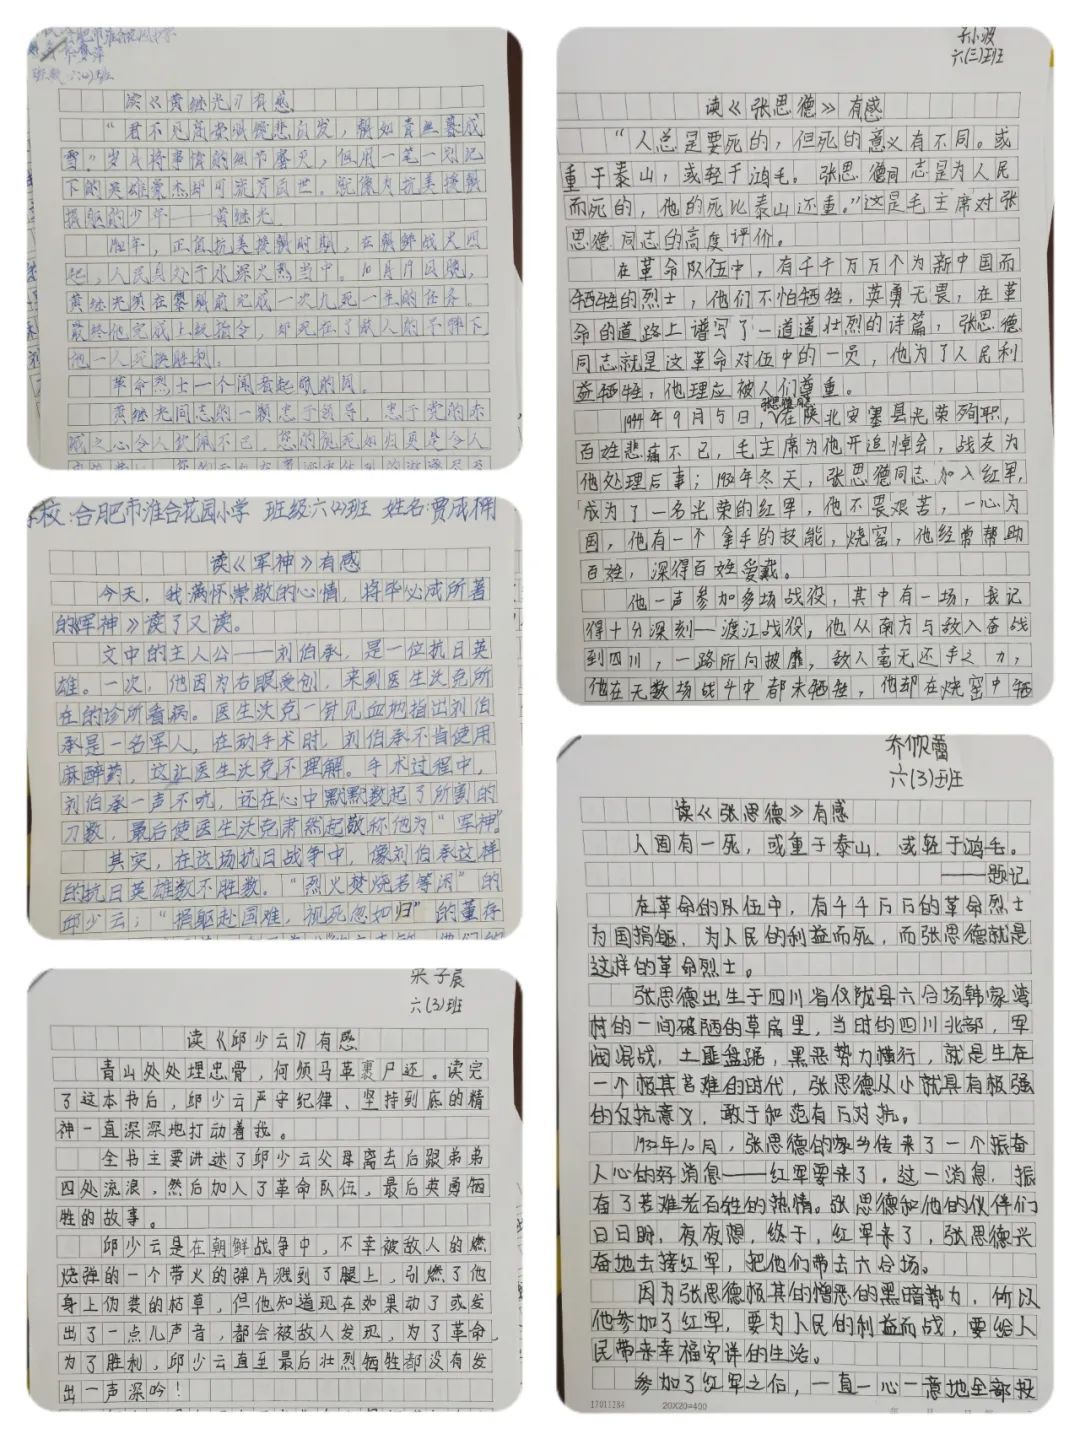 合肥市淮合花园小学
班级:六(2)班
读《黄继光》有感
“君不见高堂明镜悲白发,朝如青丝暮成
雪”岁月将事情的细节磨灭,但用一笔一划记
下的英雄豪杰却可流芳百世。就像为抗美援朝
捐躯的少年——黄继光。
那年,正值抗美援朝时期,在朝鲜战火四
起,人民身处于水深火热当中。10月19日晚,
黄继光须在黎明前完成一次九死一生的任务。
最终他完成上级指令,却死在了敌人的子弹下
他一人死换胜利。
革命烈士一个闻者起敬的词。
黄继光同志的一颗忠于领导,忠于党的赤
诚之心令人钦佩不已,您的视死如归更是令人
学校:合肥市淮合花园小学 班级:六(2)班 姓名:贾成楠
读《军神》有感
今天,我满怀崇敬的心情,将毕必成所著
的《军神》读了又读。
文中的主人公——刘伯承,是一位抗日英
雄。一次,他因为右眼受创,来到医生沃克所
在的诊所看病。医生沃克一针见血地指出刘伯
承是一名军人,在动手术时,刘伯承不肯使用
麻醉药,这让医生沃克不理解。手术过程中,
刘伯承一声不吭,还在心中默默数起了所割的
刀数,最后使医生沃克肃然起敬称他为“军神”
其实,在这场抗日战争中,像刘伯承这样
的抗日英雄数不胜数。“烈火焚烧若等闲”的
邱少云;“捐躯赴国难,视死忽如归”的董存
子辰
六(3)班
读《邱少云》有感
青山处处埋忠骨,何须马革裹尸还。读完
了这本书后,邱少云严守纪律、坚持到底的精
神一直深深地打动着我。
全书主要讲述了邱少云父母离去后跟弟弟
四处流浪,然后加入了革命队伍,最后英勇牺
牲的故事。
邱少云是在朝鲜战争中,不幸被敌人的燃
烧弹的一个带火的弹片溅到了腿上,引燃了他
身上伪装的枯草,但他知道现在如果动了或发
出了一点儿声音,都会被敌人发现,为了革命,
为了胜利,邱少云直至最后壮烈牺牲都没有发
出一声深吟!
小波
六(三)班
读《张思德》有感
“人总是要死的,但死的意义有不同。或
重于泰山,或轻于鸿毛。张思德同志是为人民
而死的,他的死比泰山还重。”这是毛主席对张
思德同志的高度评价。
在革命队伍中,有千千万万个为新中国而
牺牲的烈士,他们不怕牺牲,英勇无畏,在革
命的道路上谱写了一道道壮烈的诗篇,张思德
同志就是这革命对伍中的一员,他为了人民利
益牺牲,他理应被人们尊重。
1944年9月5日,张思德同志在陕北安塞县光荣殉职,
百姓悲痛不已,毛主席为他开追悼会,战友为
他处理后事;1932年冬天,张思德同志加入红军,
成为了一名光荣的红军,他不畏艰苦,一心为
国,他有一个拿手的技能,烧窑,他经常帮助
百姓,深得百姓爱戴。
他一声参加多场战役,其中有一场,我记
得十分深刻—渡江战役,他从南方与敌人奋战
到四川,一路所向披靡,敌人毫无还手之力,
他在无数场战斗中都未牺牲,他却在烧窑中牺
乔欣蕾
六(3)班
读《张思德》有感
人固有一死,或重于泰山,或轻于鸿毛。
——题记
在革命的队伍中,有千千万万的革命烈士
为国捐躯,为人民的利益而死,而张思德就是
这样的革命烈士。
张思德出生于四川省仪陇县六合场韩家湾
村的一间破陋的草房里,当时的四川北部,军
阀混战,土匪盘踞,黑恶势力横行,就是生在
一个极其苦难的时代,张思德从小就具有极强
的反抗意义,敢于和范有后对抗。
1932年10月,张思德的家乡传来了一个振奋
人心的好消息——红军要来了。这一消息,振
奋了苦难老百姓的热情。张思德和他的伙伴们
日日盼,夜夜想,终于,红军来了,张思德兴
奋地去接红军,把他们带去六合场。
因为张思德极其的憎恶的黑暗势力,所以
他参加了红军,要为人民的利益而战,要给人
民带来幸福安详的生活。
参加了红军之后,一直一心一意地全部投
17011284 20X20=400